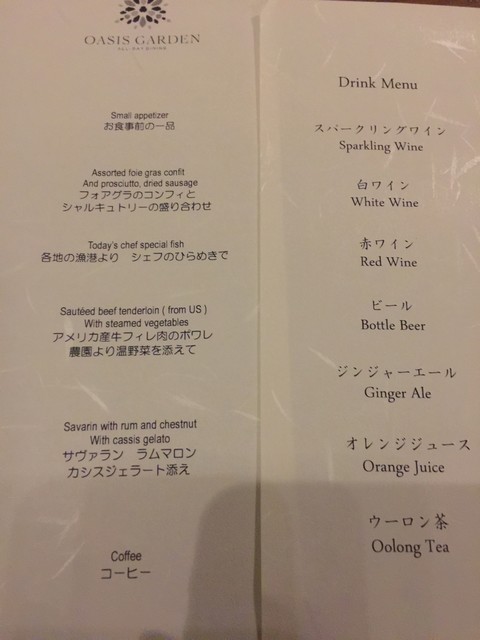 OASIS GARDEN
ALL-DAY DINING
Small appetizer
お食事前の一品
Assorted foie gras confit
And prosciutto, dried sausage
フォアグラのコンフィと
シャルキュトリーの盛り合わせ
Today's chef special fish
各地の漁港より　シェフのひらめきで
Sautéed beef tenderloin ( from US )
With steamed vegetables
アメリカ産牛フィレ肉のポワレ
農園より温野菜を添えて
Savarin with rum and chestnut
With cassis gelato
サヴァラン　ラムマロン
カシスジェラート添え
Coffee
コーヒー
Drink Menu
スパークリングワイン
Sparkling Wine
白ワイン
White Wine
赤ワイン
Red Wine
ビール
Bottle Beer
ジンジャーエール
Ginger Ale
オレンジジュース
Orange Juice
ウーロン茶
Oolong Tea